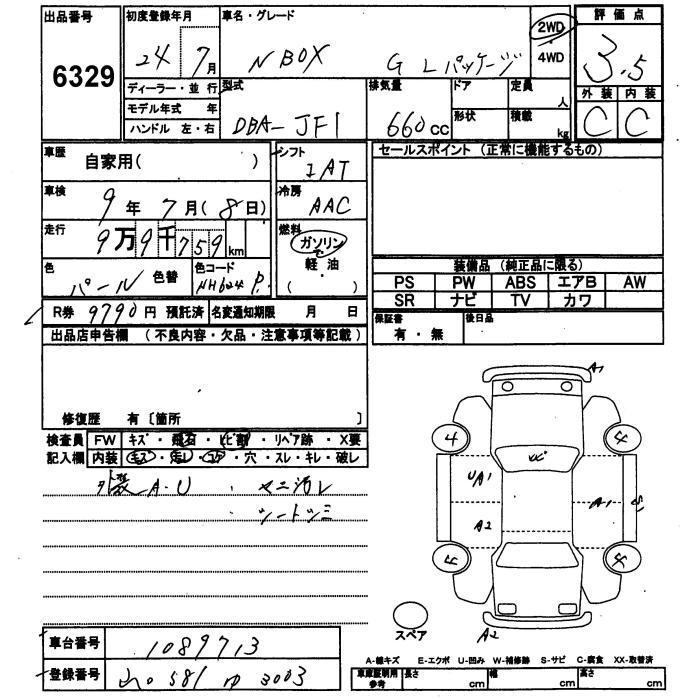 出品番号 6329
初度登録年月 24 7月
車名・グレード N BOX G Lパッケージ
2WD 4WD
評価点 3.5
外装 内装
C C
ディーラー・並行
モデル年式 年
ハンドル 左・右
型式 DBA-JF1
排気量 660cc
ドア 形状
定員 人
積載 kg
車歴 自家用( )
シフト IAT
セールスポイント (正常に機能するもの)
車検 9年7月(8日)
冷房 AAC
走行 9万9千759km
燃料 ガソリン 軽油 ( )
色 パール 色替
色コード NH624P
装備品 (純正品に限る)
PS PW ABS エアB AW
SR ナビ TV カワ
R券 9790円 預託済
名変通知期限 月 日
保証書 有・無
後日品
出品店申告欄 (不良内容・欠品・注意事項等記載)
修復歴 有〔箇所 〕
検査員記入欄
FW キズ・飛石・ヒビ割・リペア跡・X要
内装 キズ・汚レ・コゲ・穴・スレ・キレ・破レ
外装A・U
シートシミ
A1
4 4
ヒビ
UA1
A1
A2
スペア
A2
車台番号 1089713
登録番号 581 ゆ 3003
A-線キズ E-エクボ U-凹み W-補修跡 S-サビ C-腐食 XX-取替済
車庫証明用参考 長さ cm 幅 cm 高さ cm